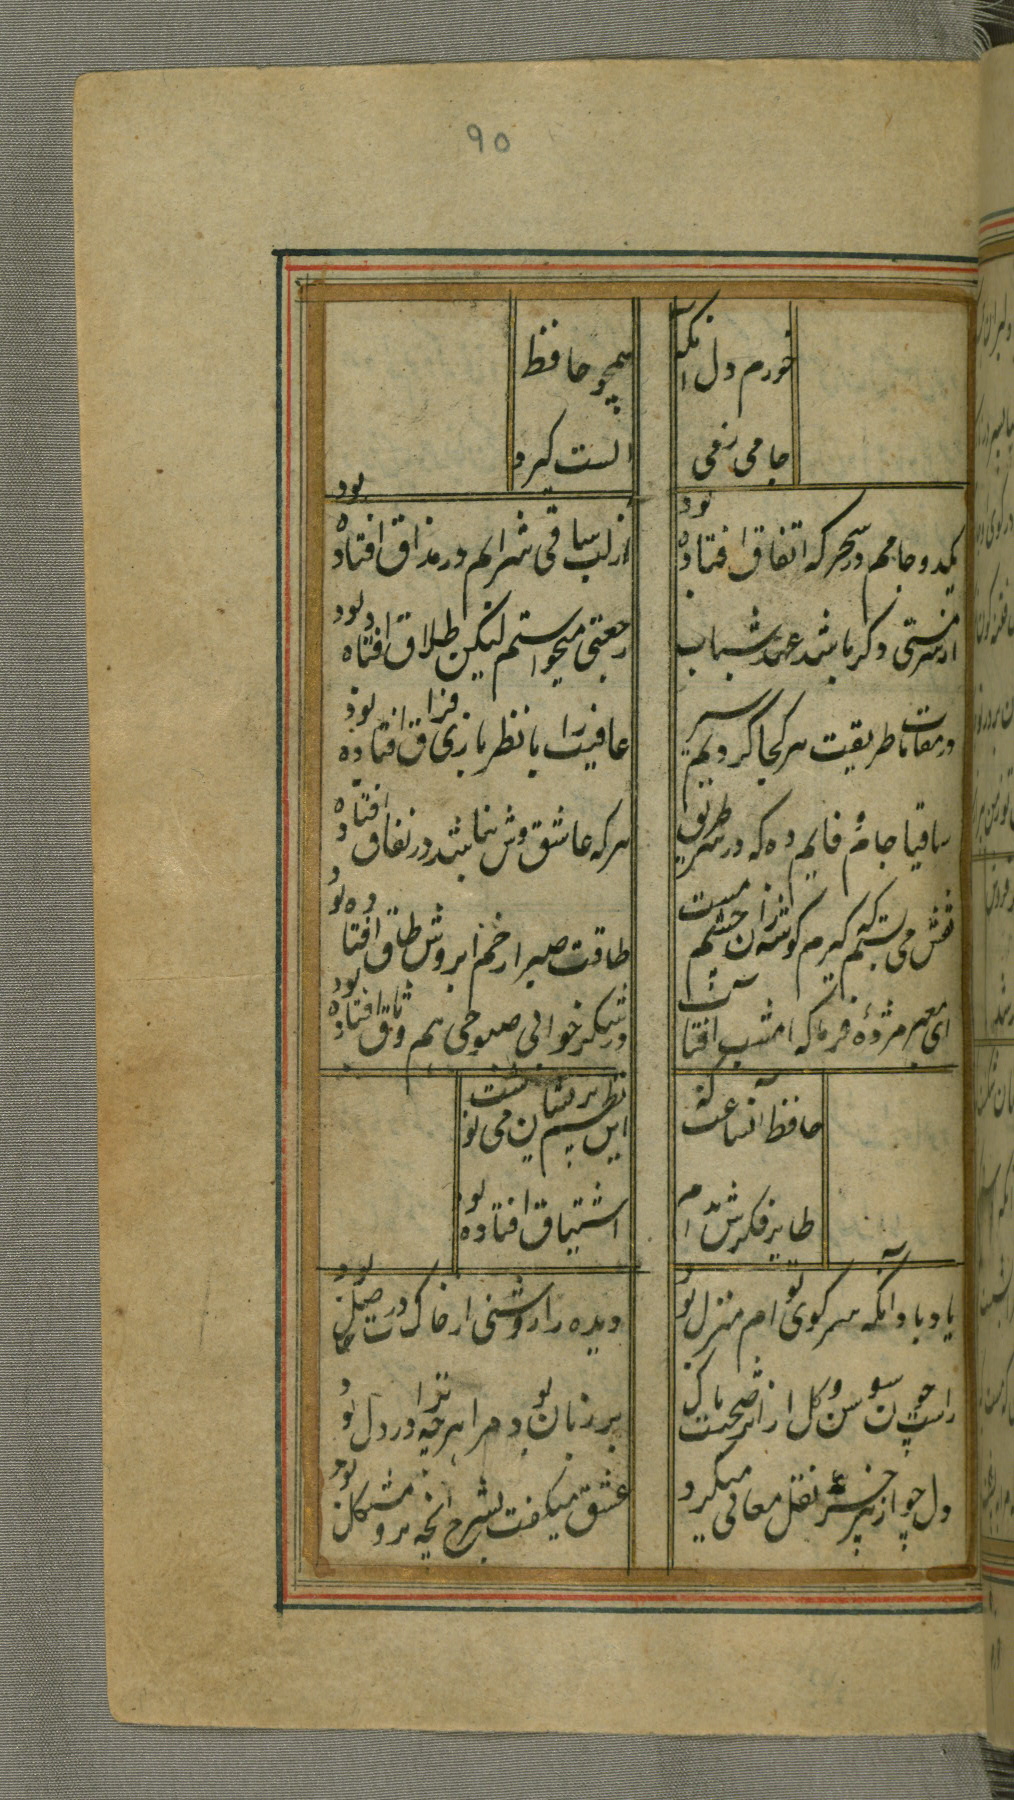 90
خورم دل آنکه همچو حافظ
جامی ز می الست گیرد
یکدو جامم دی سحرکه اتفاق افتاده بود
از لب ساقی شرابم در مذاق افتاده بود
از سر مستی دکر با شاهد عهد شباب
رجعتی میخواستم لیکن طلاق افتاده بود
در مقامات طریقت هر کجا کردیم سیر
عافیت را با نظر بازی فراق افتاده بود
ساقیا جام دمادم ده که در سیر طریق
هر که عاشق وش نباشد در نفاق افتاده
نقش می بستم که گیرم گوشه زان چشم مست
طاقت صبر از خم ابروش طاق افتاده بود
ای معبر مژده فرما که امشب آفتاب
در شکر خواب صبوحی هم وثاق افتاده بود
حافظ آنساعت که این نظم پریشان می نوشت
طایر فکرش بدام اشتیاق افتاده بود
یاد باد آنکه سر کوی توام منزل بود
دیده را روشنی از خاک درت حاصل بود
راست چون سوسن و گل از اثر صحبت پاک
بر زبان بود مرا هر چه ترا در دل بود
دل چو از پیر خرد نقل معانی میکرد
عشق میکفت بشرح آنچه برو مشکل بود